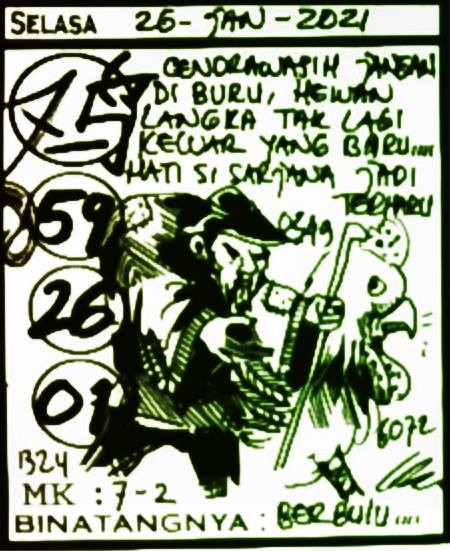 SELASA 26-JAN-2021
15
CENDRAWASIH JANGAN
DI BURU, HEWAN
LANGKA TAK LAGI
KELUAR YANG BARU....
HATI SI SARJANA JADI
TERHARU
59
0349
26
01
6072
B24
MK : 7-2
BINATANGNYA : BERBULU....